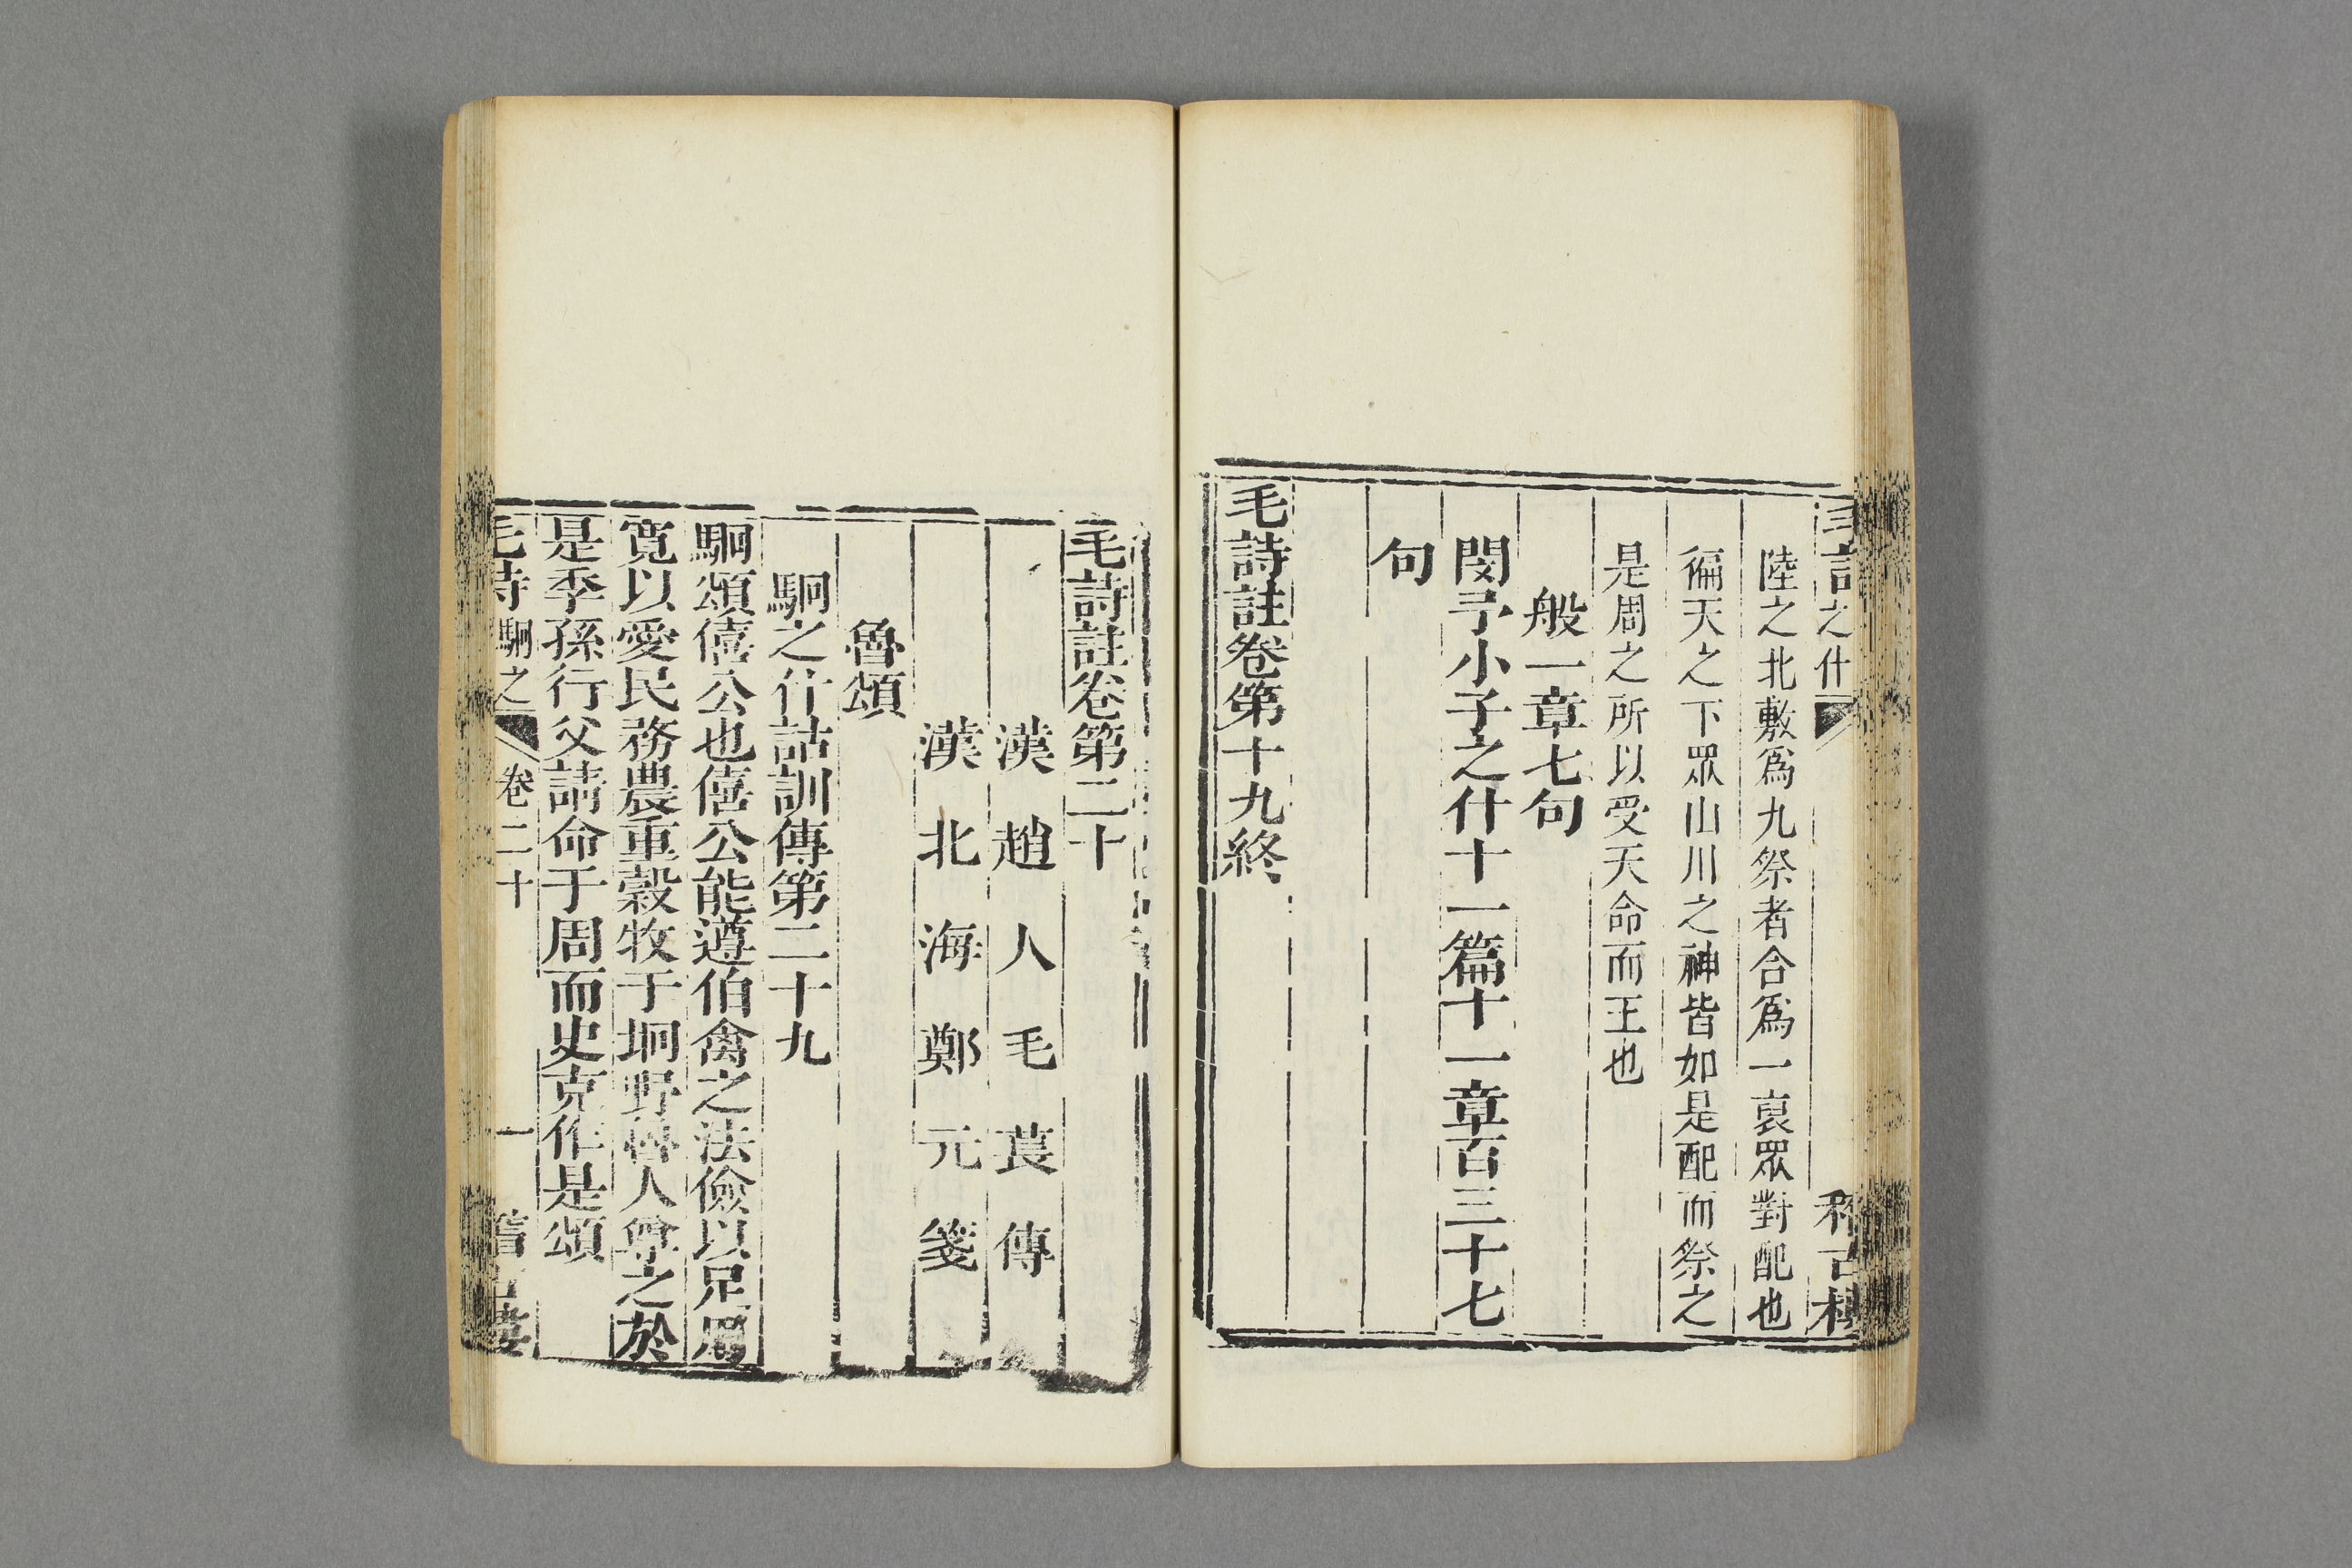 陸之北敷爲九祭者合爲一裒眾對配也
徧天之下眾山川之神皆如是配而祭之
是周之所以受天命而王也
般一章七句
閔予小子之什十一篇十一章百三十七
句
毛詩註卷第十九終
毛詩註卷第二十
漢趙人毛萇傳
漢北海鄭元箋
魯頌
駉之什詁訓傳第二十九
駉頌僖公也僖公能遵伯禽之法儉以足用
寬以愛民務農重穀牧于坰野魯人尊之於
是季孫行父請命于周而史克作是頌
毛詩 駉之 卷二十 一